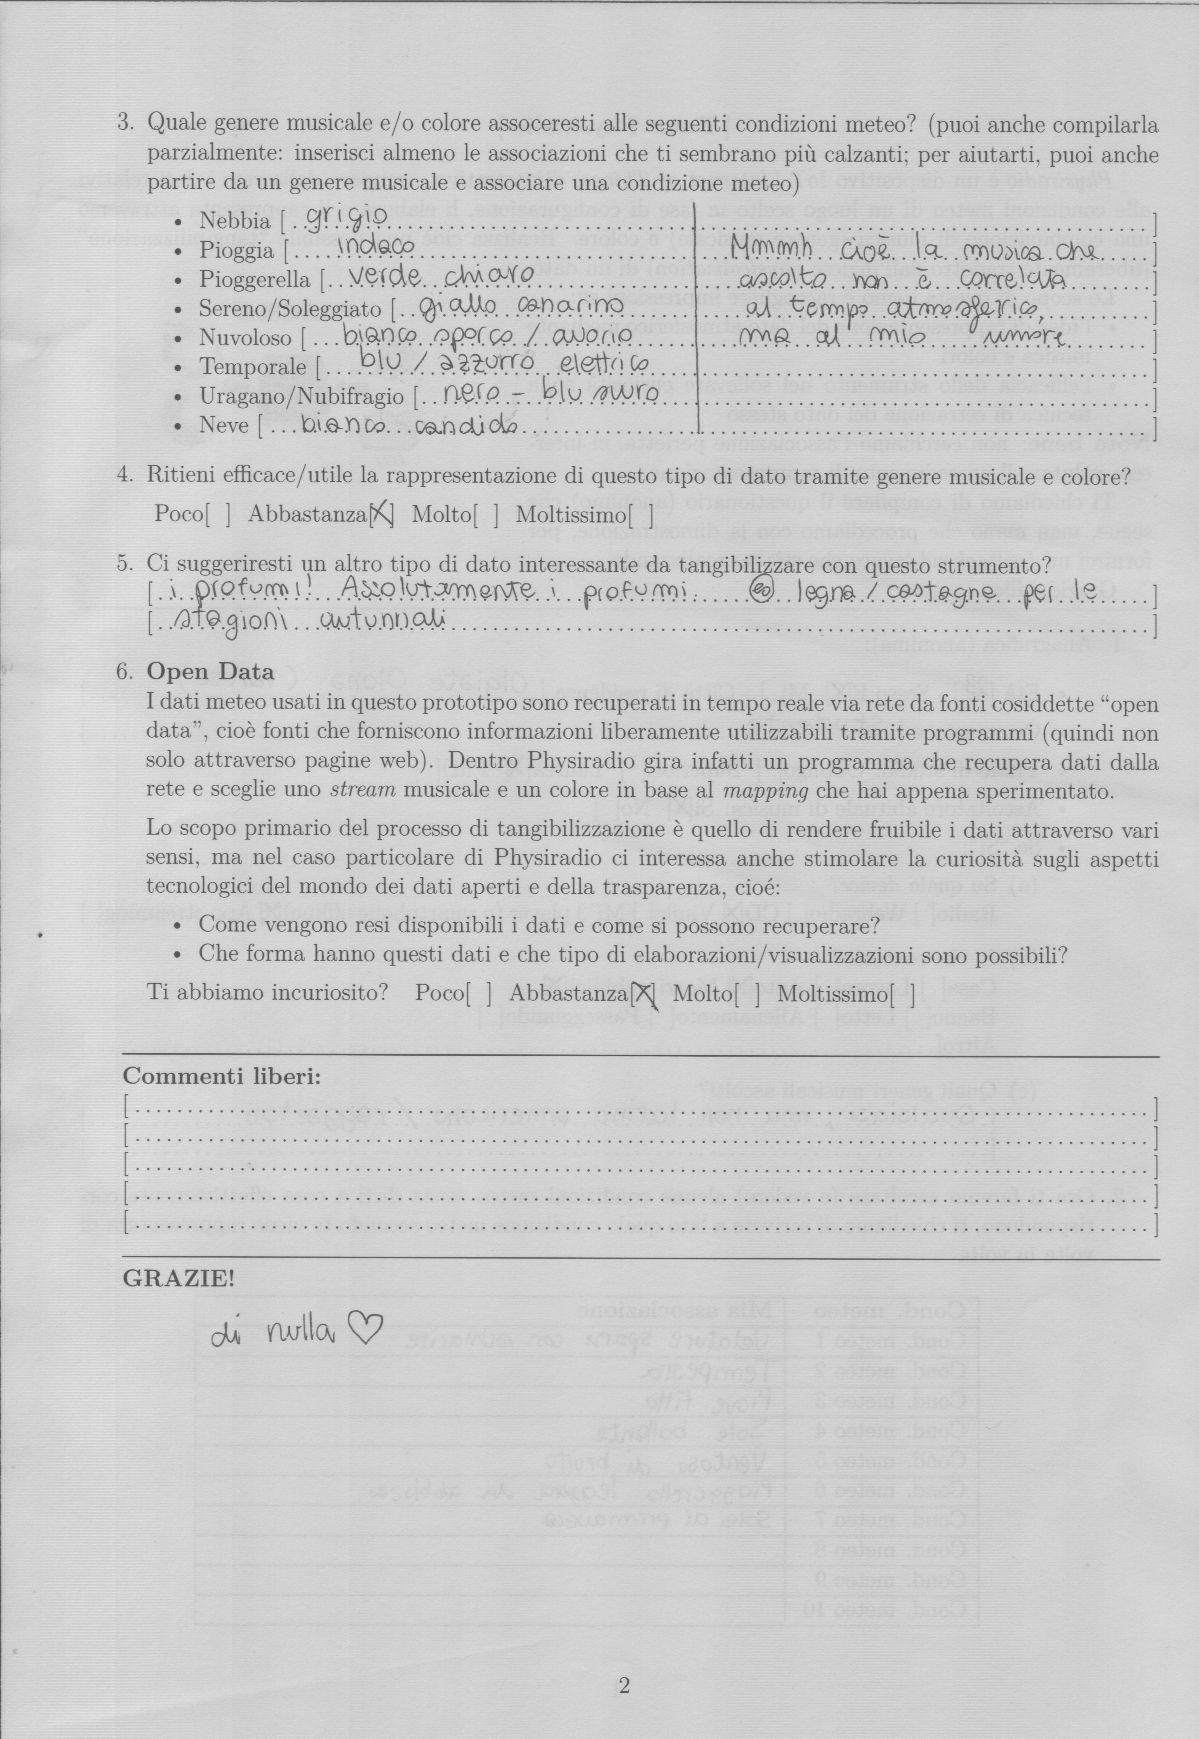 3. Quale genere musicale e/o colore assoceresti alle seguenti condizioni meteo? (puoi anche compilarla
parzialmente: inserisci almeno le associazioni che ti sembrano più calzanti; per aiutarti, puoi anche
partire da un genere musicale e associare una condizione meteo)
• Nebbia [ grigio ]
• Pioggia [ indaco Mmmh cioè la musica che ]
• Pioggerella [ verde chiaro ascolto non è correlata ]
• Sereno/Soleggiato [ giallo canarino al tempo atmosferico, ]
• Nuvoloso [ bianco sporco / avorio ma al mio umore ]
• Temporale [ blu / azzurro elettrico ]
• Uragano/Nubifragio [ nero - blu scuro ]
• Neve [ bianco candido ]
4. Ritieni efficace/utile la rappresentazione di questo tipo di dato tramite genere musicale e colore?
Poco[ ] Abbastanza[X] Molto[ ] Moltissimo[ ]
5. Ci suggeriresti un altro tipo di dato interessante da tangibilizzare con questo strumento?
[ i profumi! Assolutamente i profumi. es legna / castagne per le ]
[ stagioni autunnali ]
6. Open Data
I dati meteo usati in questo prototipo sono recuperati in tempo reale via rete da fonti cosiddette “open
data”, cioè fonti che forniscono informazioni liberamente utilizzabili tramite programmi (quindi non
solo attraverso pagine web). Dentro Physiradio gira infatti un programma che recupera dati dalla
rete e sceglie uno stream musicale e un colore in base al mapping che hai appena sperimentato.
Lo scopo primario del processo di tangibilizzazione è quello di rendere fruibile i dati attraverso vari
sensi, ma nel caso particolare di Physiradio ci interessa anche stimolare la curiosità sugli aspetti
tecnologici del mondo dei dati aperti e della trasparenza, cioé:
• Come vengono resi disponibili i dati e come si possono recuperare?
• Che forma hanno questi dati e che tipo di elaborazioni/visualizzazioni sono possibili?
Ti abbiamo incuriosito? Poco[ ] Abbastanza[X] Molto[ ] Moltissimo[ ]
Commenti liberi:
GRAZIE!
di nulla ♡
2